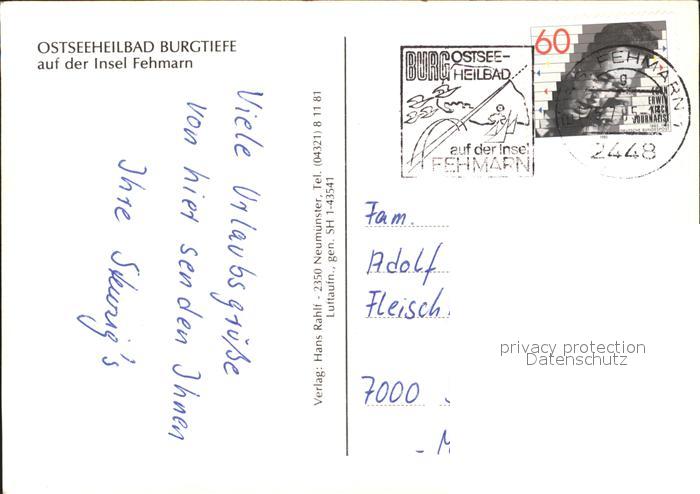 OSTSEEHEILBAD BURGTIEFE
auf der Insel Fehmarn
Viele Urlaubsgrüße
von hier senden Ihnen
Ihre
Verlag: Hans Rahlf - 2350 Neumünster, Tel. (04321) 8 11 81
Luftaufn., gen. SH 1-43541
BURG OSTSEE-
HEILBAD
auf der Insel
FEHMARN
60
EGON
ERWIN
KISCH
JOURNALIST
DEUTSCHE BUNDESPOST
FEHMARN 1
2448
Fam.
Adolf
Fleisch
7000
privacy protection
Datenschutz